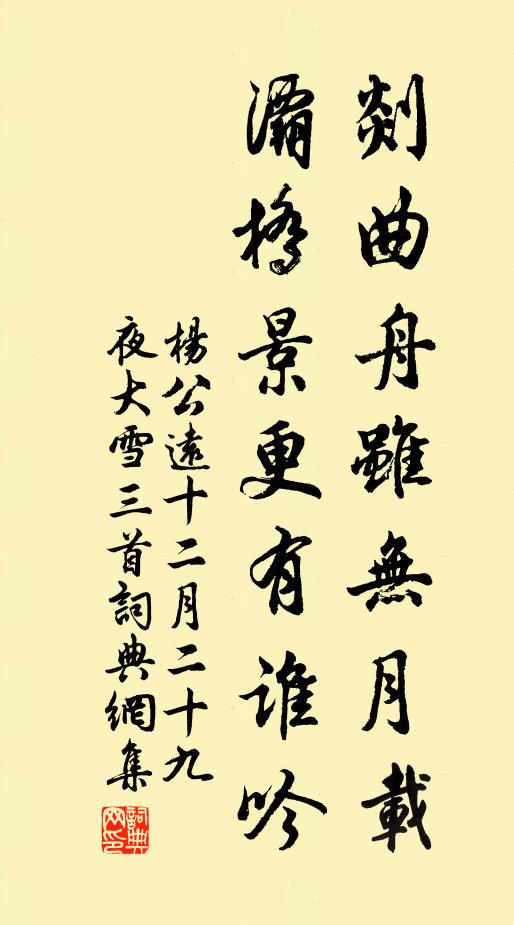 剡曲舟雖無月載
灞橋景更有誰吟
楊公遠十二月二十九
夜大雪三首詞典網集
詞典
网印